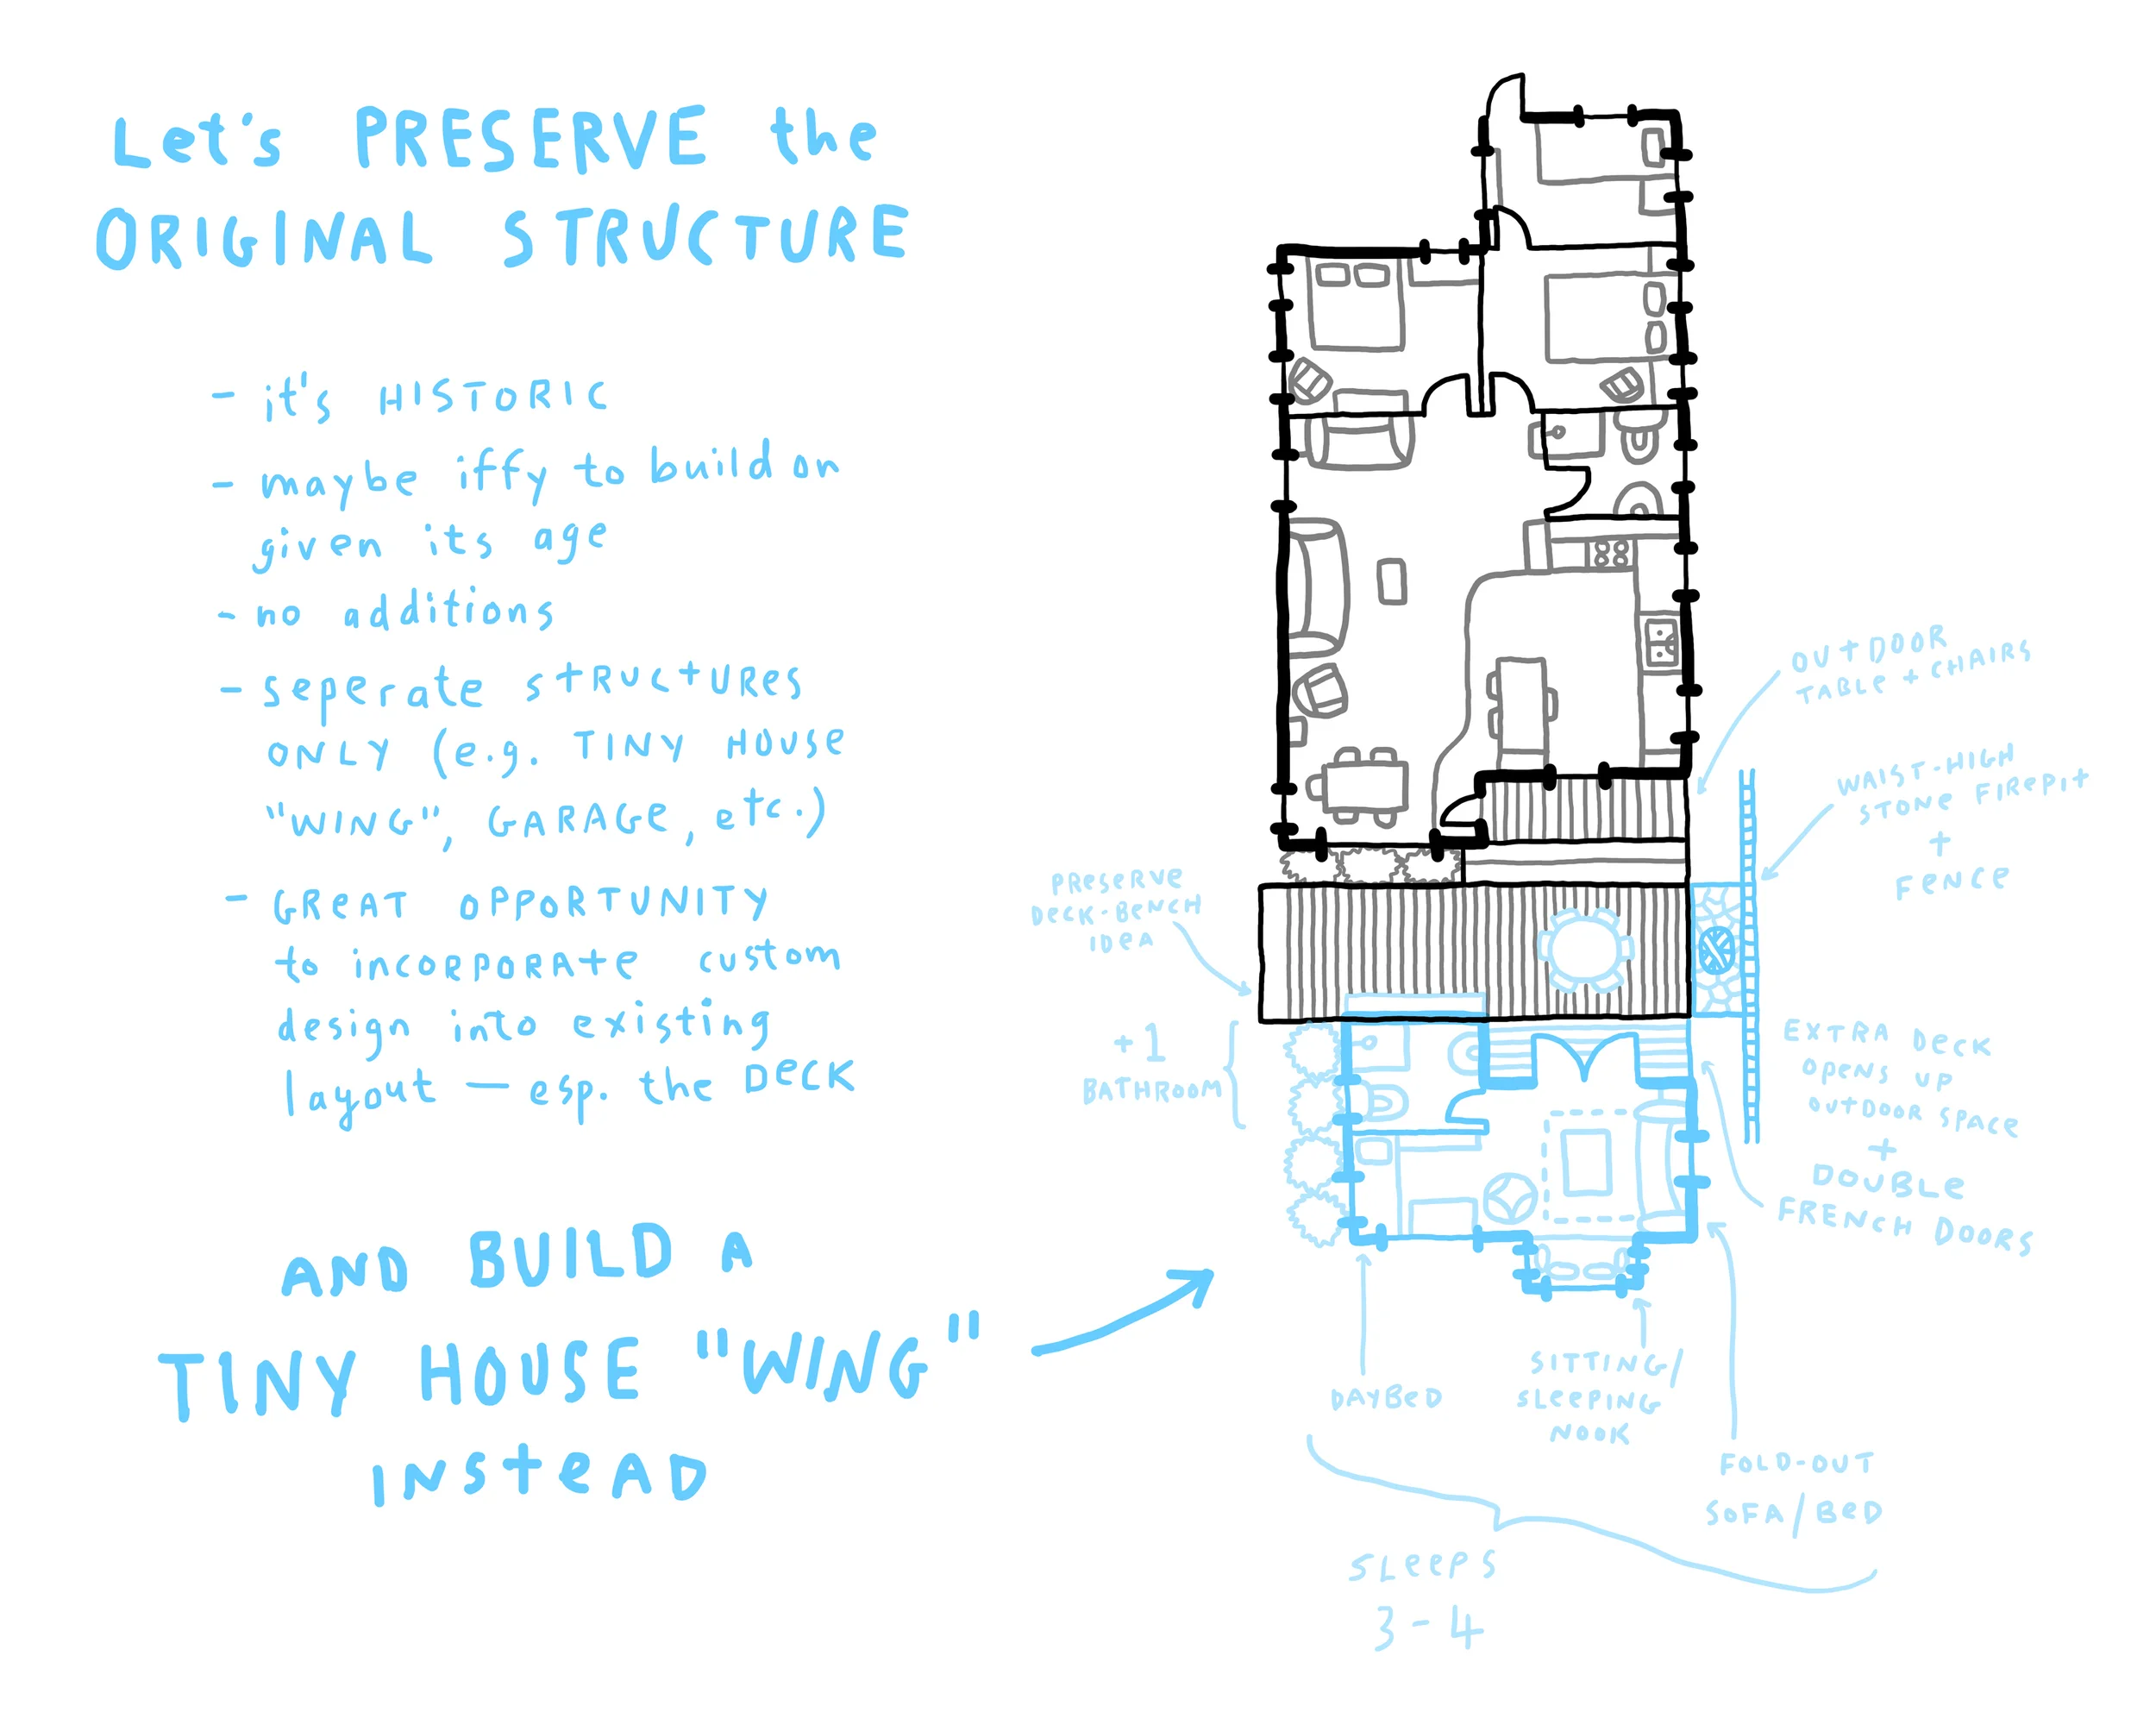 Let's PRESERVE the
ORIGINAL STRUCTURE
- it's HISTORIC
- maybe iffy to build on
given its age
- no additions
- seperate STRUCTURES
ONLY (e.g. TINY HOUSE
"WING", GARAGE, etc.)
- GREAT OPPORTUNITY
to incorporate custom
design into existing
layout — esp. the DECK
AND BUILD A
TINY HOUSE "WING"
INSTEAD
OUTDOOR
TABLE + CHAIRS
WAIST-HIGH
STONE FIREPIT
+
FENCE
PRESERVE
DECK-BENCH
IDEA
+1
BATHROOM
EXTRA DECK
OPENS UP
OUTDOOR SPACE
+
DOUBLE
FRENCH DOORS
DAYBED
SITTING/
SLEEPING
NOOK
FOLD-OUT
SOFA/BED
SLEEPS
3-4